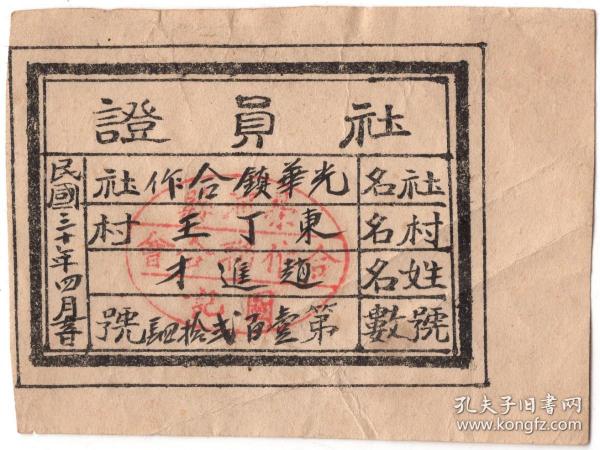 社員證
社名 光華鎮合作社
村名 東丁王村
姓名 趙進才
號數 第壹百弍拾肆號
民國三十年四月
孔夫子旧书网
www.kongfz.com